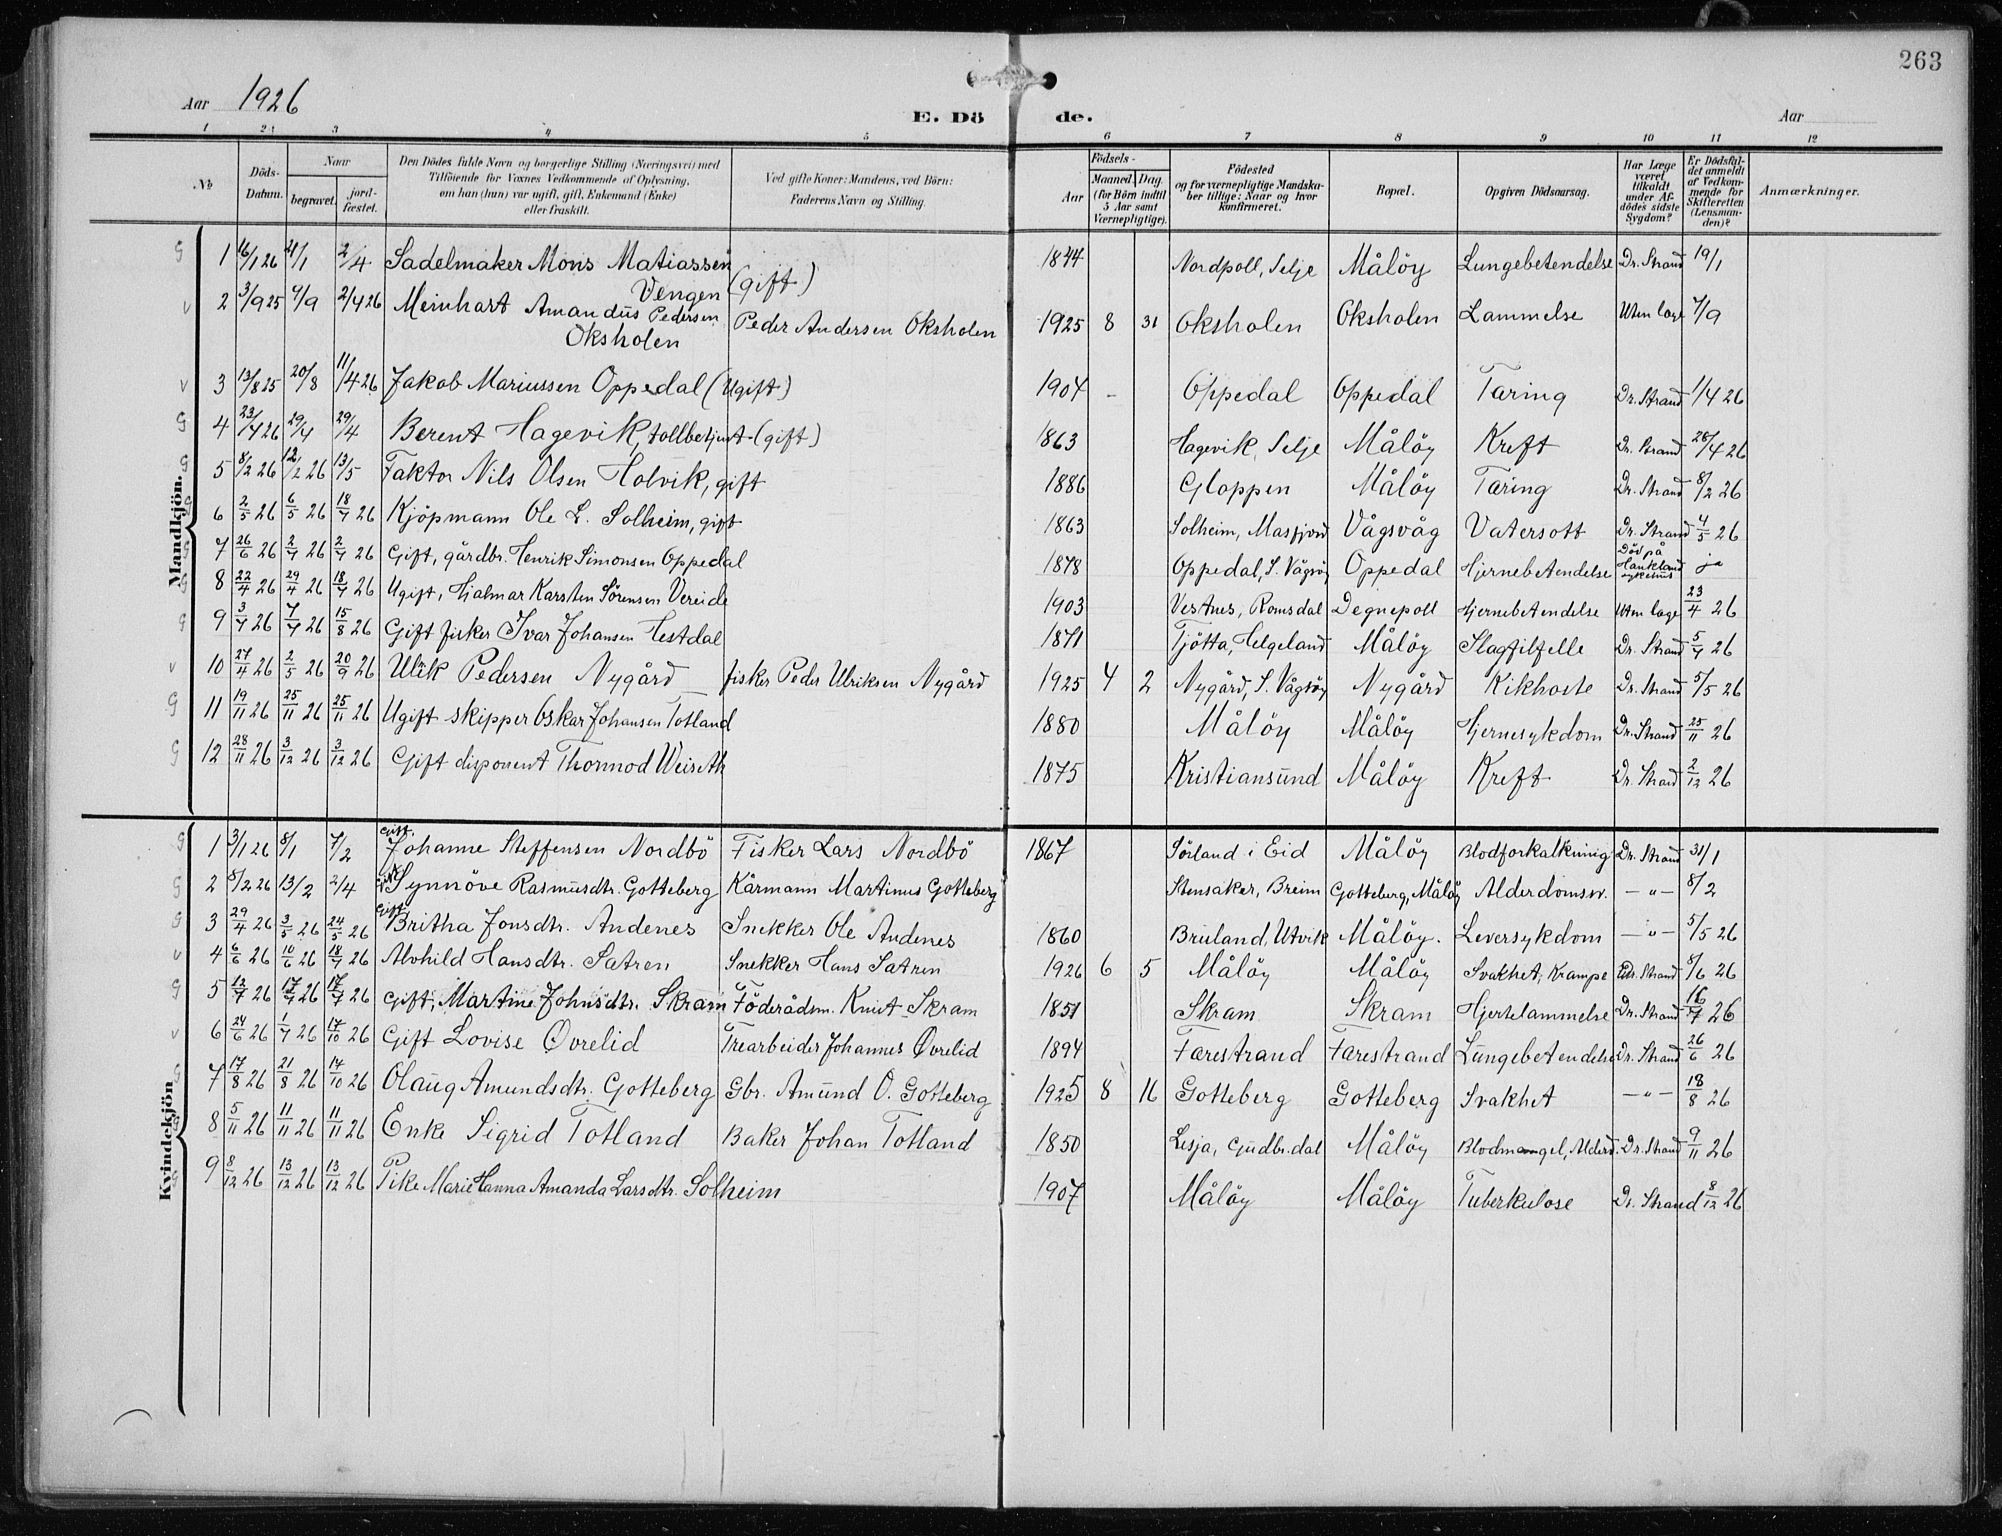 263
Aar 1926
E. Dö de.
Aar
1 2 3 4 5 6 7 8 9 10 11 12
No
Döds-Datum.
Naar
begravet.
jord-fæstet.
Den Dödes fulde Navn og borgerlige Stilling (Næringsvei) med
Tilföiende for Voxnes Vedkommende af Oplysning,
om han (hun) var ugift, gift, Enkemand (Enke)
eller fraskilt.
Ved gifte Koner: Mandens, ved Börn:
Faderens Navn og Stilling.
Födsels-
Aar
Maaned Dag
(for Börn indtil
5 Aar samt
Værnepligtige).
Födested
og for værnepligtige Mandska-
ber tillige: Naar og hvor
konfirmeret.
Bopæl.
Opgiven Dödsaarsag.
Har Læge
været
tilkaldt
under Af-
dödes sidste
Sygdom?
Er Dödsfal-
det anmeldt
af Vedkom-
mende for
Skifteretten
(Lensman-
den)?
Anmærkninger.
Mandkjön.
1 16/1 26 21/1 2/4 Sadelmaker Mons Matiassen Vengen (gift) 1844 Nordpoll, Selje Målöy Lungebetendelse Dr. Strand 19/1
2 3/9 25 4/9 2/4 26 Meinhart Amandus Pedersen Oksholen Peder Andersen Oksholen 1925 8 31 Oksholen Oksholen Lammelse Uten læge 7/9
3 13/8 25 20/8 11/4 26 Jakob Mariussen Oppedal (Ugift) 1904 - Oppedal Oppedal Tæring Dr. Strand 1/4 26
4 23/4 26 29/4 29/4 Berent Hagevik, tollbetjent (gift) 1863 Hagevik, Selje Målöy Kreft Dr. Strand 28/4 26
5 8/2 26 12/2 26 13/5 Faktor Nils Olsen Holvik, gift 1886 Gloppen Målöy Tæring Dr. Strand 8/2 26
6 2/5 26 6/5 26 18/7 26 Kjöpmann Ole L. Solheim, gift 1863 Solheim, Masfjord Vågsvåg Vatersott Dr. Strand 4/5 26
7 26/6 26 2/7 26 2/7 26 Gift, gårdbr. Henrik Simonsen Oppedal 1878 Oppedal, S. Vågsöy Oppedal Hjernebetendelse Död på Haukland sykehus ja
8 22/4 26 29/4 26 18/7 26 Ugift, Hjalmar Karsten Sörensen Vereide 1903 Vestnes, Romsdal Degnepoll Hjernebetendelse Uten læge 23/4 26
9 3/7 26 7/7 26 15/8 26 Gift fisker Ivar Johansen Hestdal 1871 Tjötta, Helgeland Målöy Slagtilfelle Dr. Strand 5/7 26
10 27/4 26 2/5 26 20/9 26 Ulrik Pedersen Nygård fisker Peder Ulriksen Nygård 1925 4 2 Nygård, S. Vågsöy Nygård Kikhoste Dr. Strand 5/5 26
11 19/11 26 25/11 26 25/11 26 Ugift skipper Oskar Johansen Totland 1880 Målöy Målöy Hjernesykdom Dr. Strand 25/11 26
12 28/11 26 3/12 26 3/12 26 Gift disponent Thormod Weiseth 1875 Kristiansund Målöy Kreft Dr. Strand 2/12 26
Kvindekjön
1 3/1 26 8/1 7/2 Gift. Johanne Steffensen Nordbö Fisker Lars Nordbö 1867 Sörland i Eid Målöy Blodforkalkning Dr. Strand 31/1
2 8/2 26 13/2 2/4 Gift Synnöve Rasmusdtr. Gotteberg Kårmann Martinus Gotteberg Stensaker, Breim Gotteberg, Målöy Alderdomssv. -"- 8/2
3 29/4 26 3/5 26 24/5 26 Gift Britha Jonsdtr. Andenes Snekker Ole Andenes 1860 Bruland, Utvik Målöy. Leversykdom -"- 5/5 26
4 6/6 26 10/6 26 18/7 26 Alvhild Hansdtr. Sætren Snekker Hans Sætren 1926 6 5 Målöy Målöy Svakhet, Krampe Dr. Strand 8/6 26
5 13/7 26 17/7 26 17/7 26 Gift, Martine Johnsdtr. Skram Föderådsm. Knut Skram 1851 Skram Skram Hjertelammelse Dr. Strand 16/7 26
6 24/6 26 1/7 26 17/10 26 Gift Lovise Øvrelid Trearbeider Johannes Øvrelid 1894 Færestrand Færestrand Lungebetendelse Dr. Strand 26/6 26
7 17/8 26 21/8 26 14/10 26 Olaug Amundsdtr. Gotteberg Gbr. Amund O. Gotteberg 1925 8 16 Gotteberg Gotteberg Svakhet -"- 18/8 26
8 5/11 26 11/11 26 11/11 26 Enke Sigrid Totland Baker Johan Totland 1850 Lesja, Gudbr.dal Målöy Blodmangel, Alderd. Dr. Strand 9/11 26
9 8/12 26 13/12 26 13/12 26 Pike Marie Hanna Amanda Larsdtr. Solheim 1907 Målöy Målöy Tuberkulose Dr. Strand 8/12 26